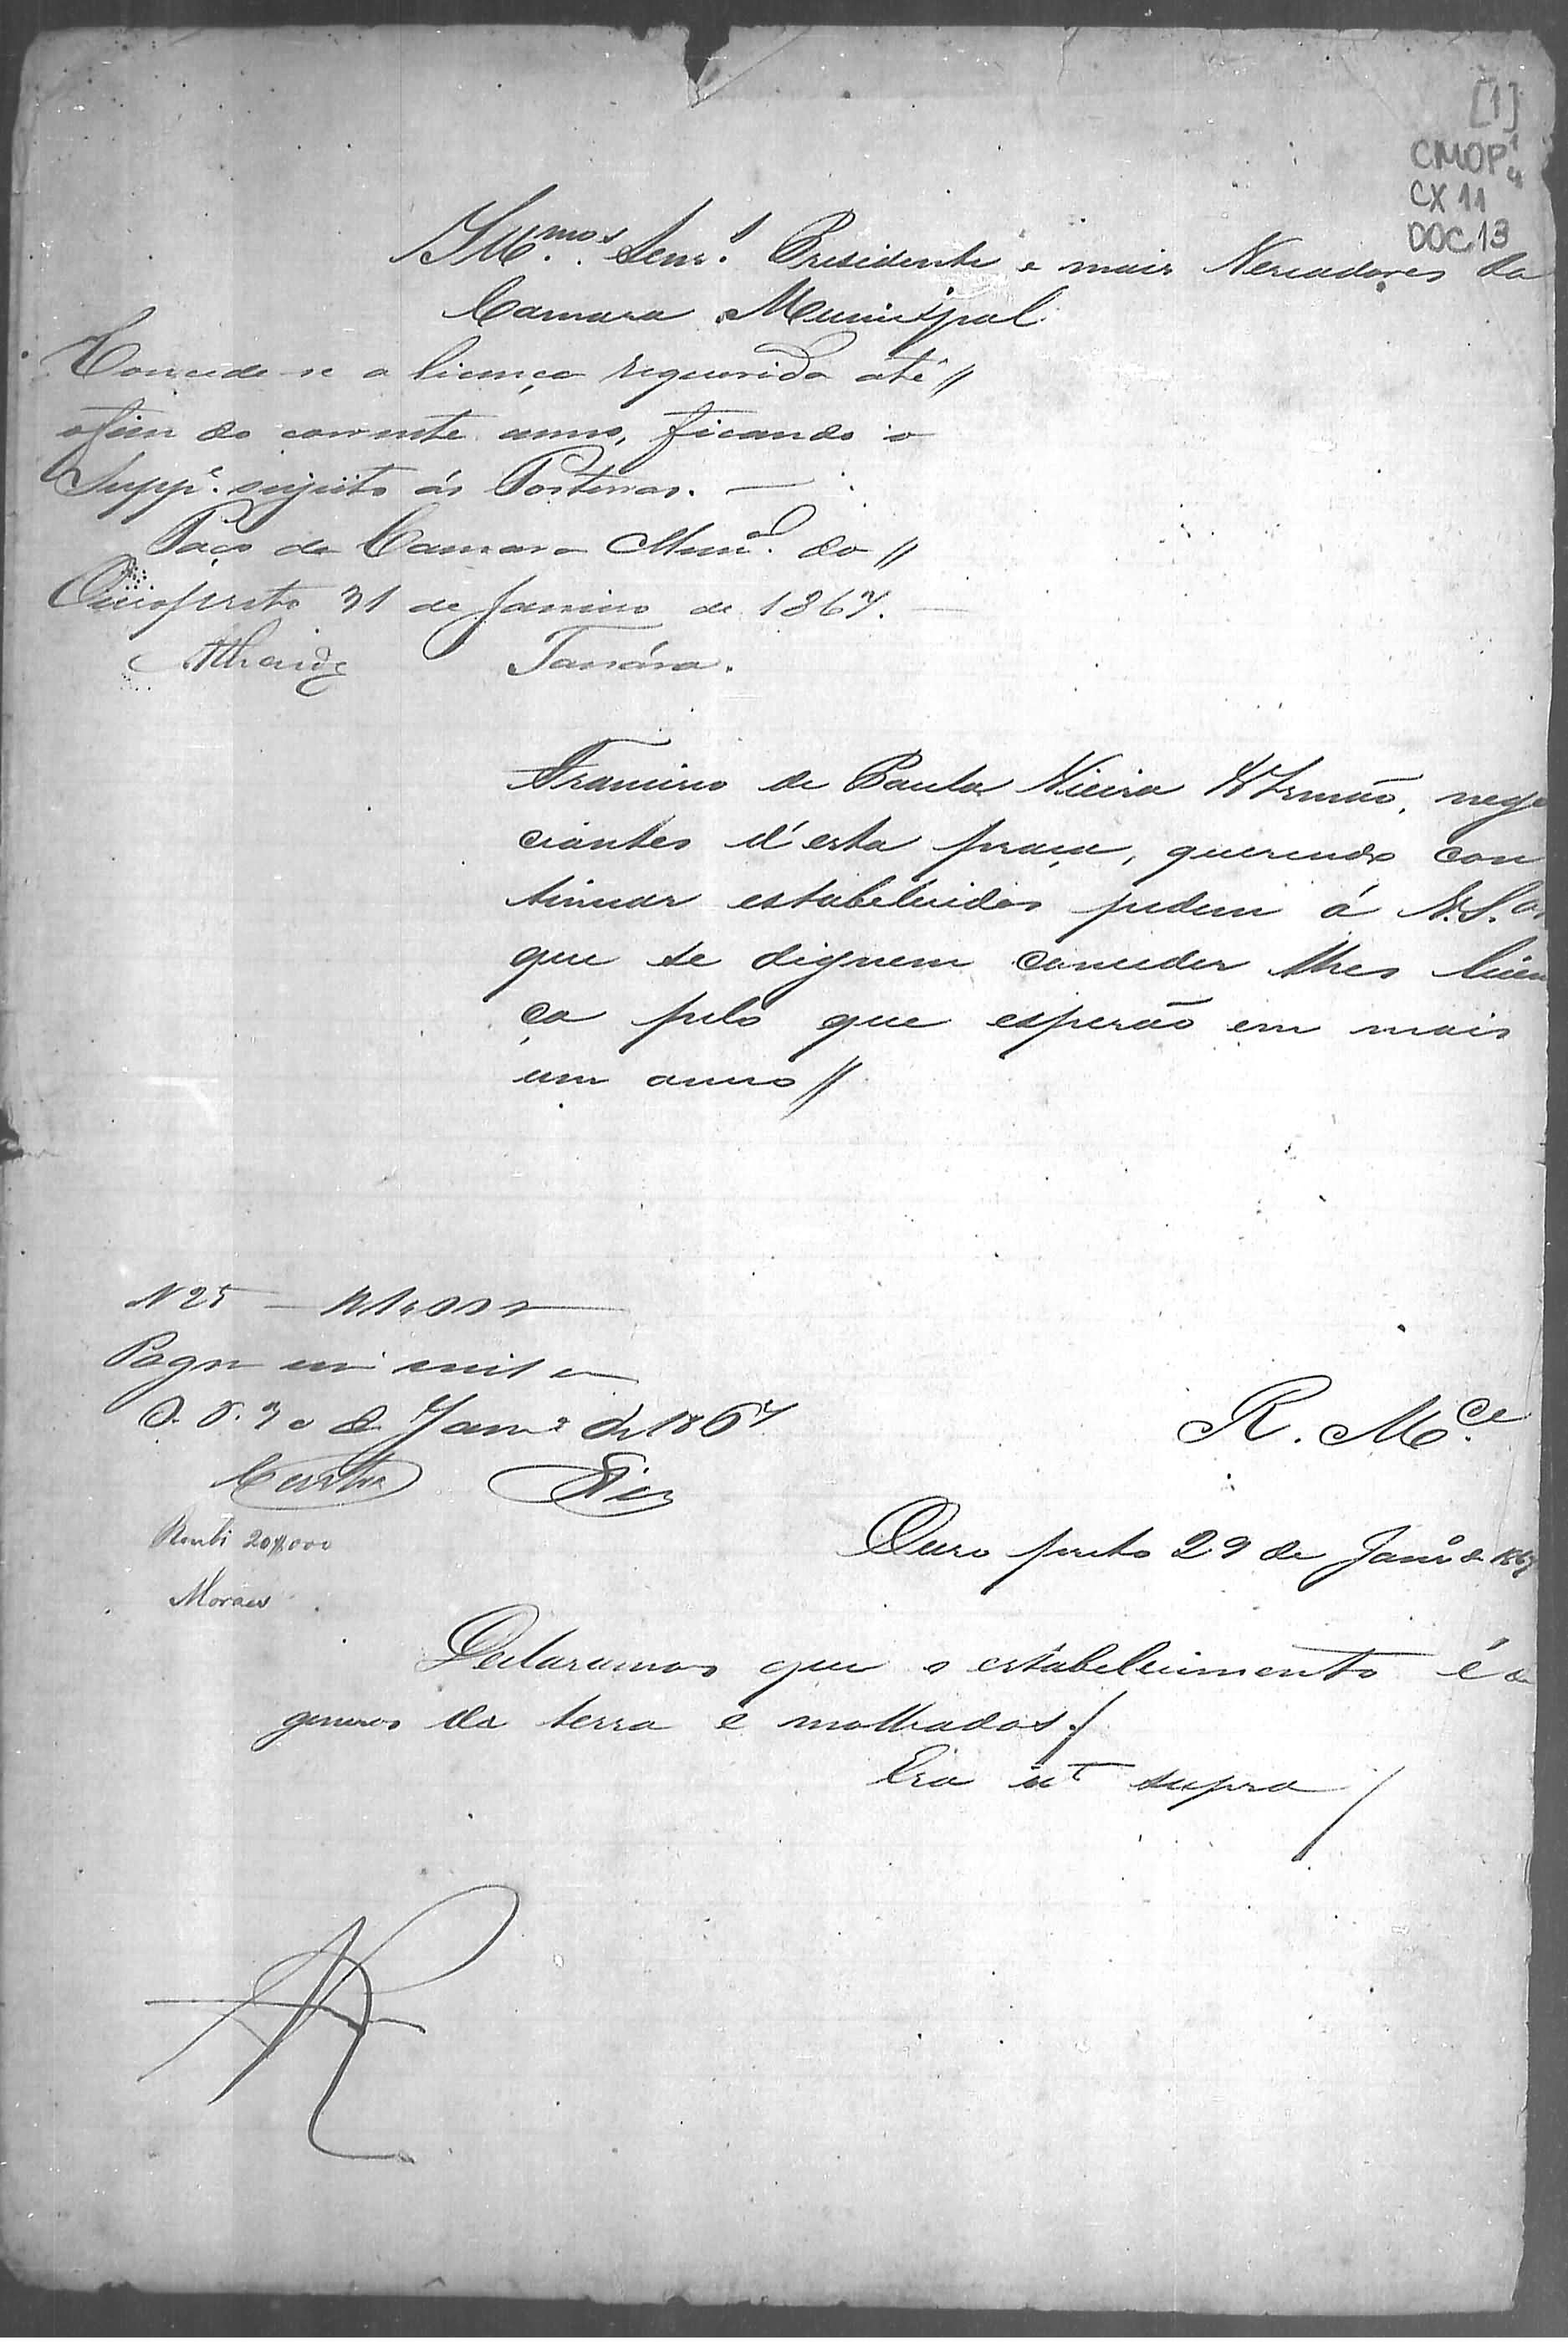 [1]
CMOP
CX 11
DOC. 13
Illmos. Senrs. Presidente e mais Vereadores da
Camara Municipal
Concede-se a licença requerida até //
o fim do corrente anno, ficando o
Suppe. sujeito ás Posturas. —
Paço da Camara Munal. do //
Ouropreto 31 de Janeiro de 1867. —
Athaide
Francisco de Paula Vieira & Irmão, nego
ciantes d'esta praça, querendo con
tinuar estabelecidos pedem á V.S.as
que se dignem conceder lhes licen
ça pelo que esperão em mais
um anno //
N 25
Pagn
O. P. 30 de Janro de 1867
R. Mce.
Coutro
Rubi 20$000
Ouro preto 29 de Janro de 1867
Moraes
Declaramos que o estabelecimento é de
generos da terra e molhados./
Era ut supra /